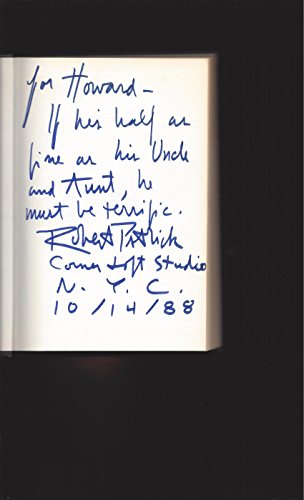 for Howard—
If he's half as
fine as his Uncle
and Aunt, he
must be terrific.
Robert Patrick
Corner Loft Studio
N. Y. C.
10/14/88